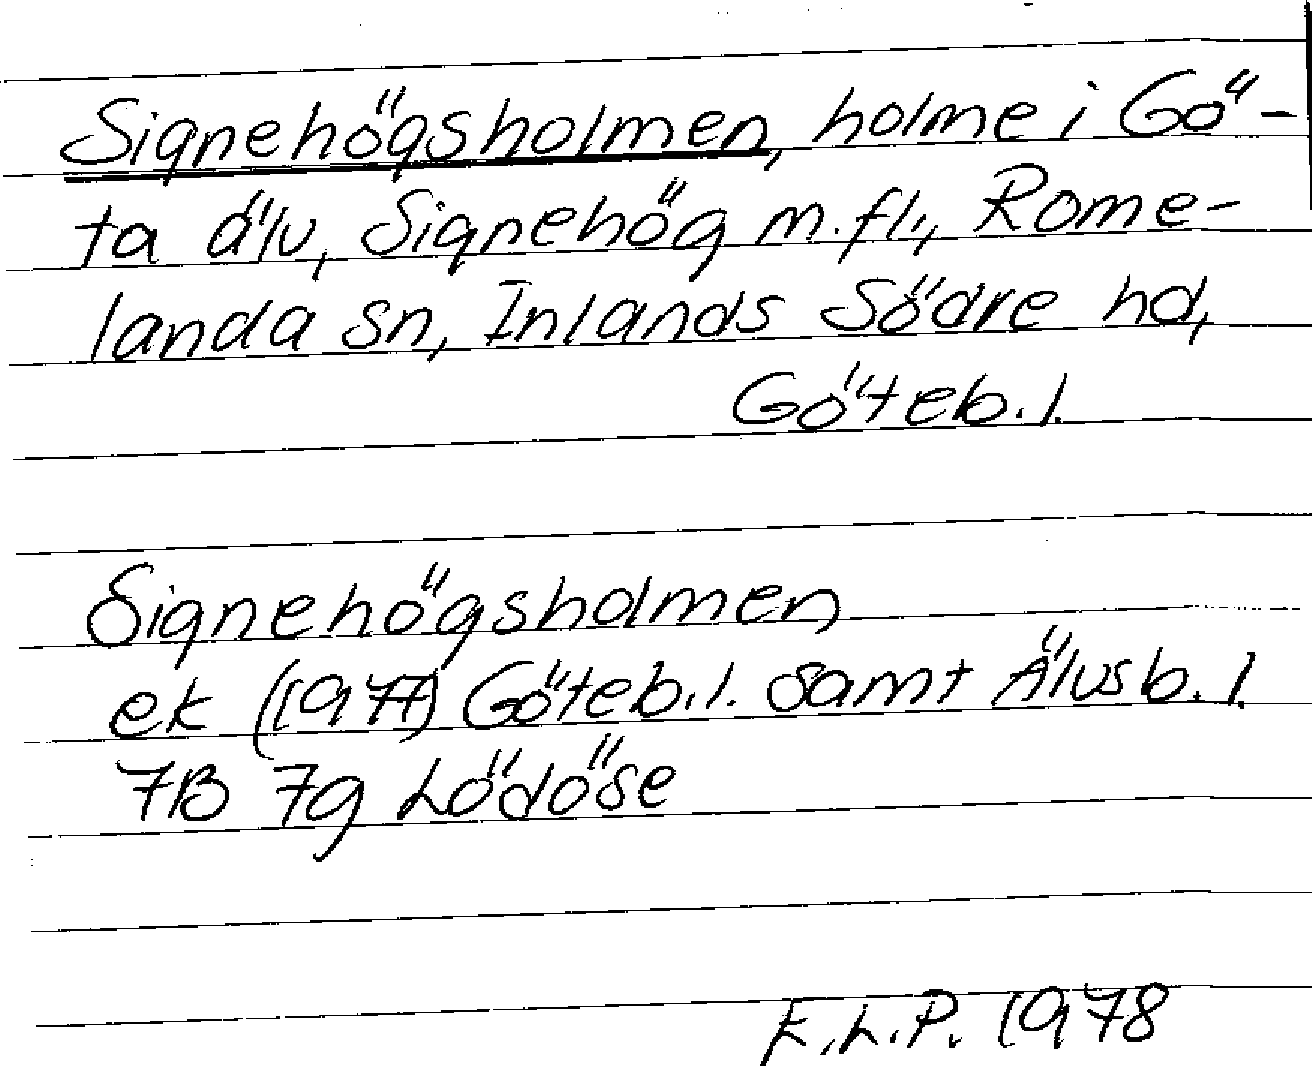 Signehögsholmen, holme i Gö-
ta älv, Signehög m.fl., Rome-
landa sn, Inlands Södre hd,
Göteb.l.
Signehögsholmen
ek (1977) Göteb.l. samt Älvsb.l.
7B 7g Lödöse
E.L.P. 1978